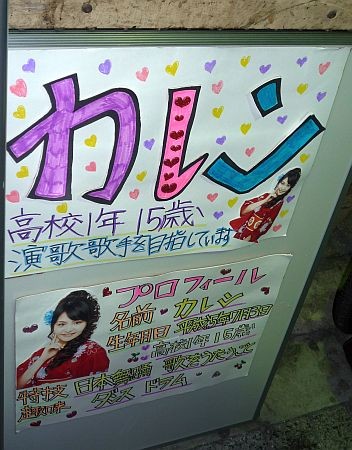 カレン
高校1年 15歳
演歌歌手を目指しています
プロフィール
名前 カレン
生年月日 平成5年9月3日
高校1年 15歳
特技 日本舞踊 歌をうたうこと
趣味 ダンス ドラム